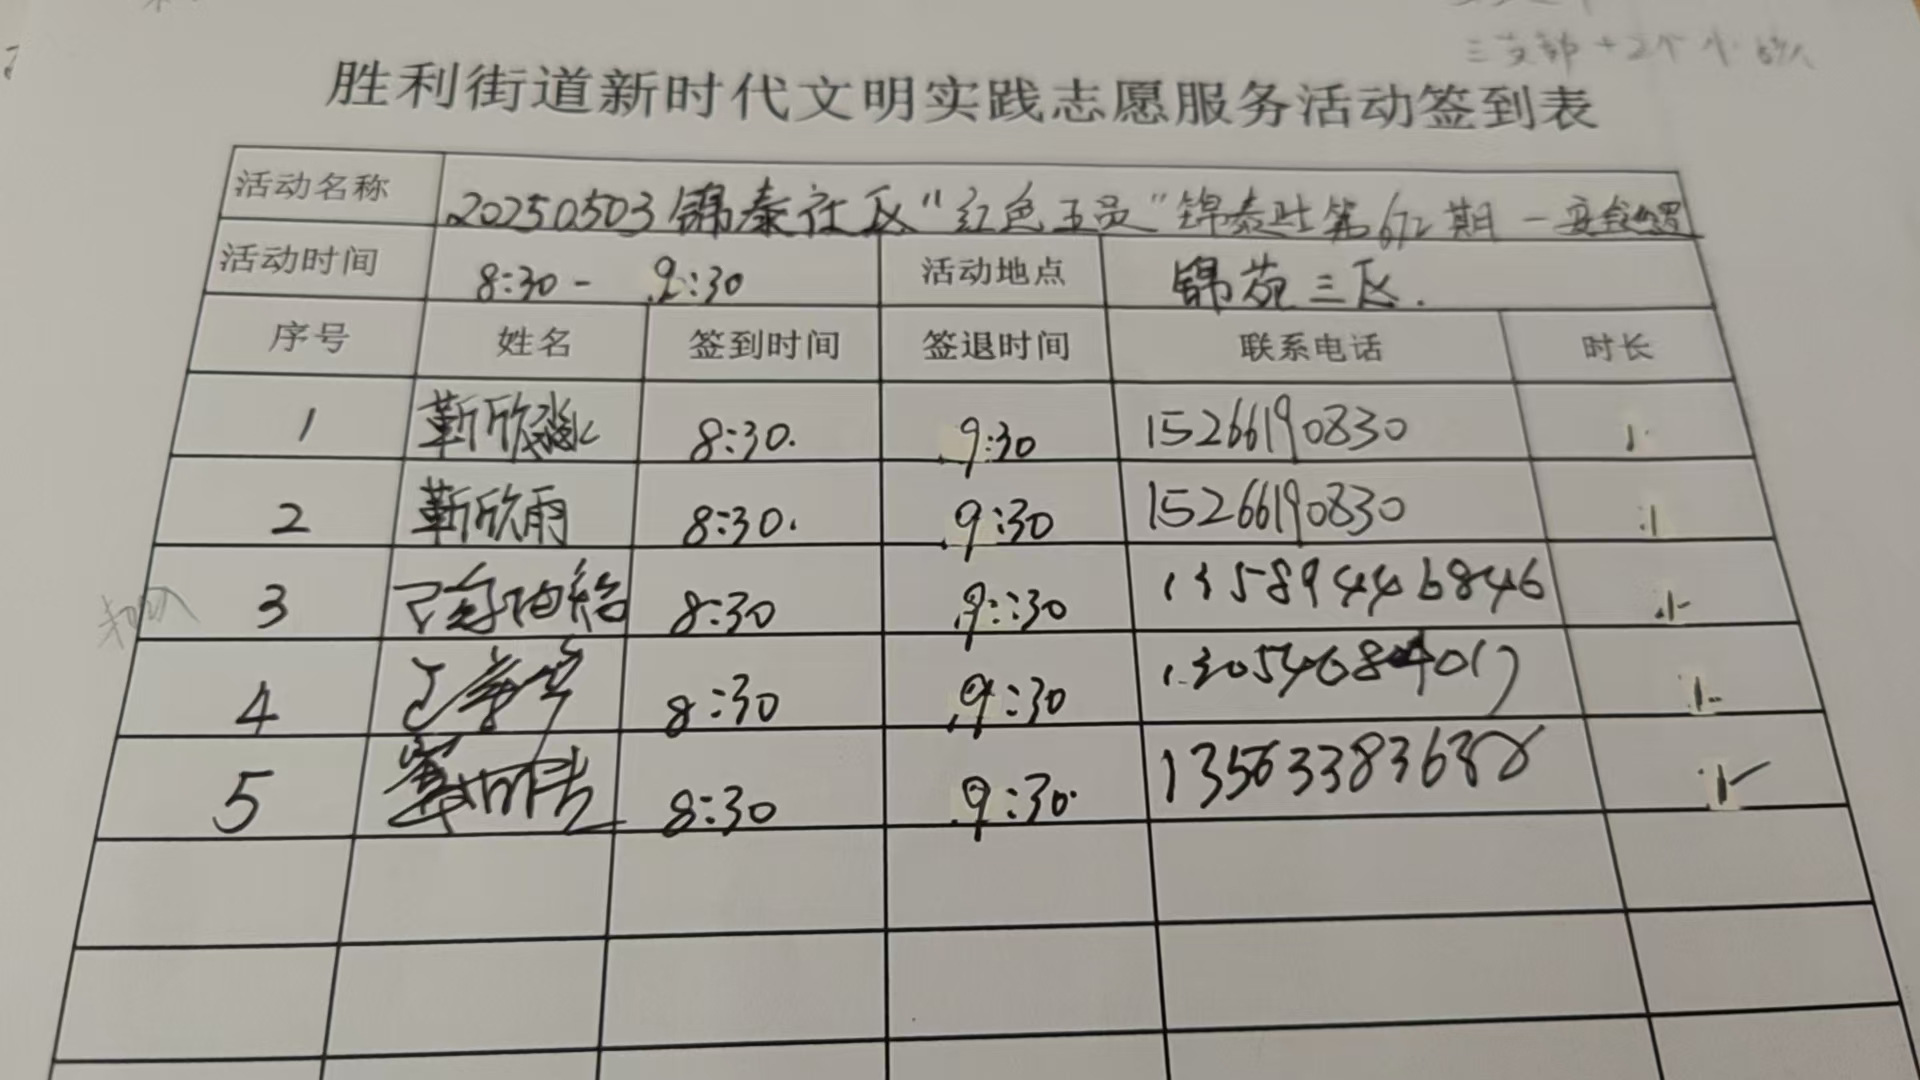 三支部+2个小
胜利街道新时代文明实践志愿服务活动签到表
活动名称 20250503锦泰社区“红色五员”锦泰社第672期一
活动时间 8:30- 9:30 活动地点 锦苑三区.
序号 姓名 签到时间 签退时间 联系电话 时长
1 靳欣 8:30. 9:30 15266190830 1.
2 靳欣雨 8:30. 9:30 15266190830 1
3 8:30 9:30 13589446846 1
4 8:30 9:30 1
5 8:30 9:30. 1